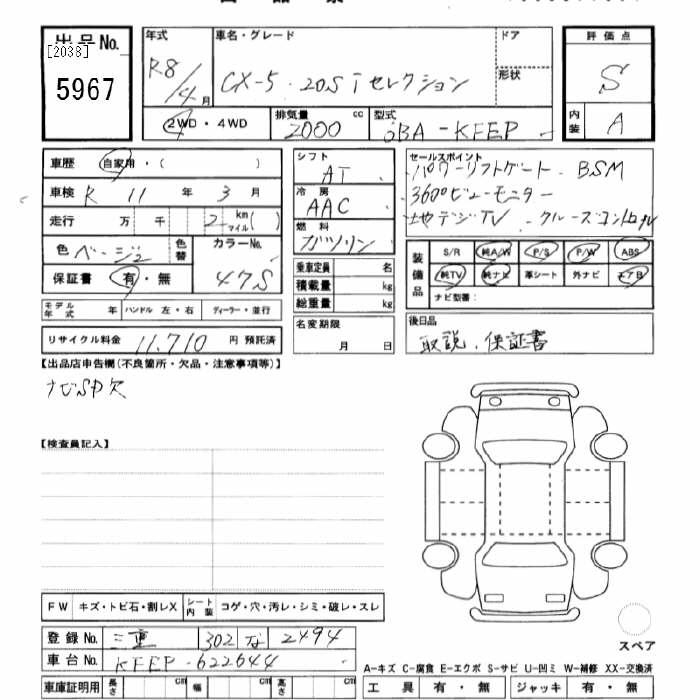 出品No.
[2038]
5967
年式
R8/4月
車名・グレード
CX-5・20S i セレクション
ドア
形状
評価点
S
内装
A
2WD・4WD
排気量
2000 cc
型式
6BA-KFEP
車歴
自家用・( )
車検
R 11年 3月
走行
万 千 2 km マイル( )
色
ベージュ
色替
カラーNo.
47S
保証書
有・無
モデル年式 年
ハンドル 左・右
ディーラー・並行
リサイクル料金
11,710 円 預託済
シフト
AT
冷房
AAC
燃料
ガソリン
乗車定員 名
積載量 kg
総重量 kg
名変期限
月 日
セールスポイント
パワーリフトゲート・BSM
360°ビューモニター
地デジTV・クルーズコントロール
装備品
S/R 純A/W P/S P/W ABS
純TV 純ナビ 革シート 外ナビ エアB
ナビ型番:
後日品
取説、保証書
【出品店申告欄(不良箇所・欠品・注意事項等)】
ナビSD欠
【検査員記入】
FW キズ・トビ石・割レX シート内装 コゲ・穴・汚レ・シミ・破レ・スレ
登録No. 三重 302 な 2494
車台No. KFEP-622644
車庫証明用 長さ cm 幅 cm 高さ cm
スペア
A-キズ C-腐食 E-エクボ S-サビ U-凹ミ W-補修 XX-交換済
工具 有・無 ジャッキ 有・無